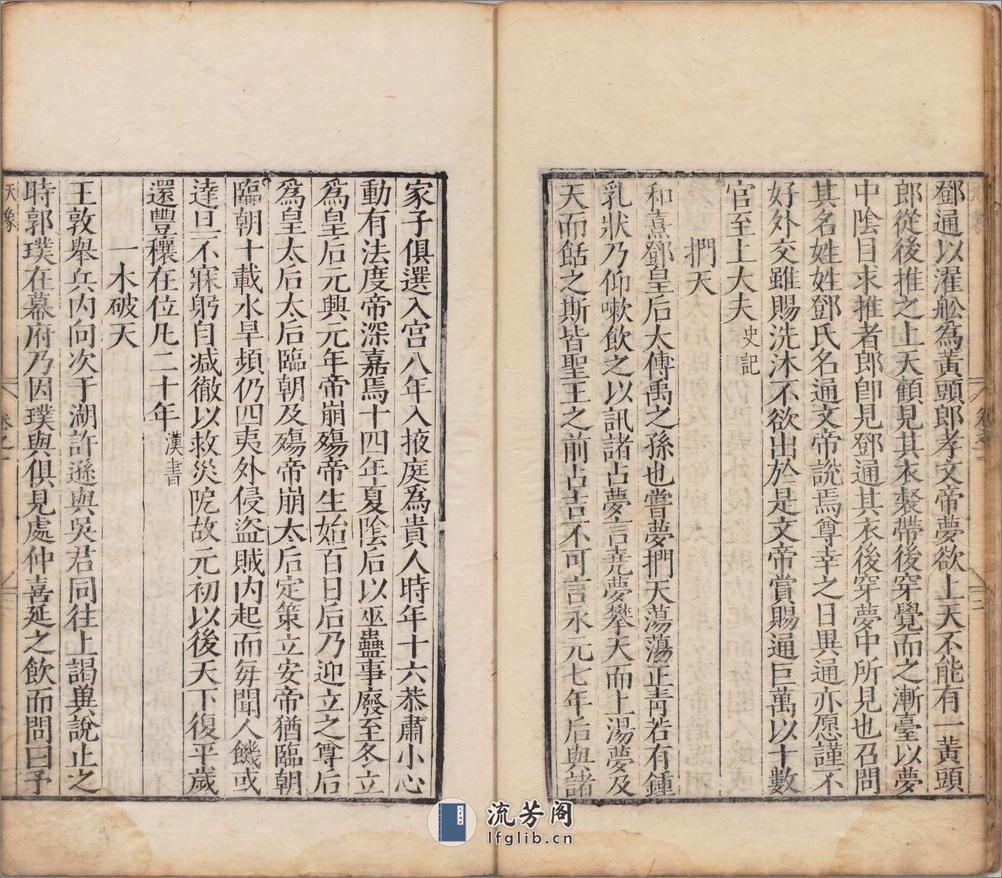 鄧通以濯舩為黃頭郎孝文帝夢欲上天不能有一黃頭
郎從後推之上天顧見其衣裻帶後穿覺而之漸臺以夢
中陰目求推者郎卽見鄧通其衣後穿夢中所見也召問
其名姓姓鄧氏名通文帝說焉尊幸之日異通亦愿謹不
好外交雖賜洗沐不欲出於是文帝賞賜通巨萬以十數
官至上大夫 史記
捫天
和熹鄧皇后太傅禹之孫也嘗夢捫天蕩蕩正青若有鍾
乳狀乃仰嗽飲之以訊諸占夢言堯夢攀天而上湯夢及
天而䑛之斯皆聖王之前占吉不可言永元七年后與諸
家子俱選入宮八年入掖庭為貴人時年十六恭肅小心
動有法度帝深嘉焉十四年夏陰后以巫蠱事廢至冬立
爲皇后元興元年帝崩殤帝生始百日后乃迎立之尊后
爲皇太后太后臨朝及殤帝崩太后定策立安帝猶臨朝
臨朝十載水旱頻仍四夷外侵盜賊內起而每聞人饑或
達旦不寐躬自减徹以救災阨故元初以後天下復平歲
還豐穰在位凡二十年 漢書
一木破天
王敦舉兵內向次于湖許遜與吳君同往上謁冀說止之
時郭璞在幕府乃因璞與俱見處仲喜延之飲而問曰予
天象
卷之一
流芳阁
lfglib.cn